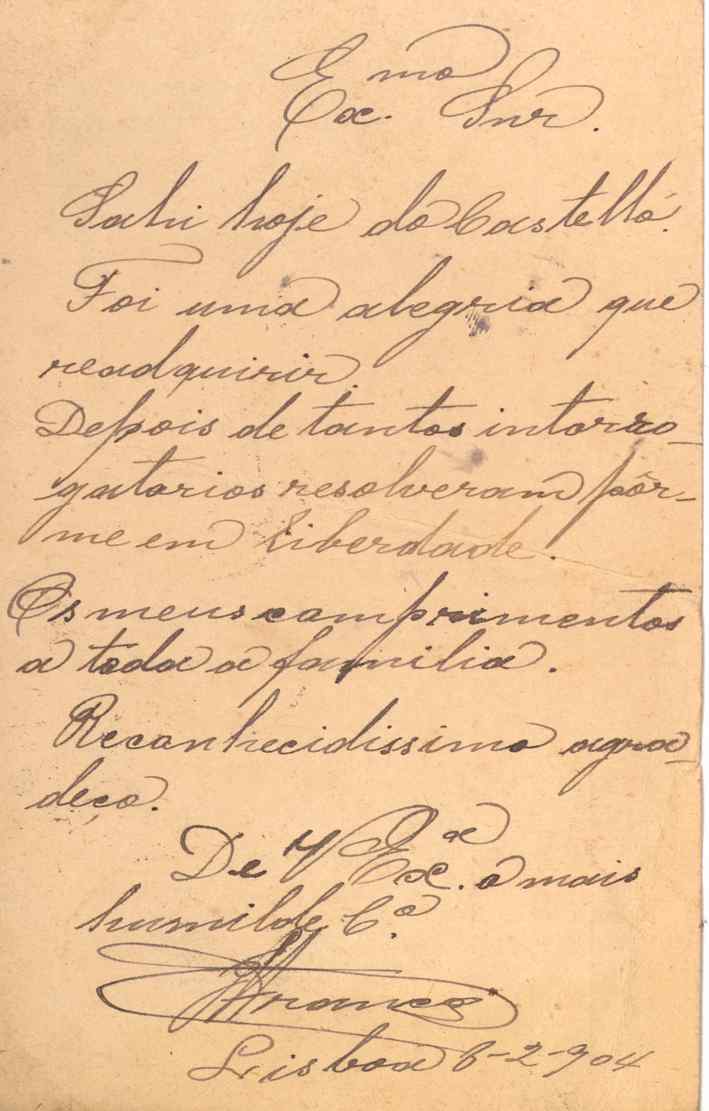 Exmo
Ex. Snr.
Sahi hoje do Castello.
Foi uma alegria que
readquirir.
Depois de tantos interro-
gatorios resolveram pôr-
me em liberdade.
Os meus comprimentos
a toda a familia.
Reconhecidissimo agra-
deço.
De V Exª. o mais
humilde C.º
Lisboa 6-2-904